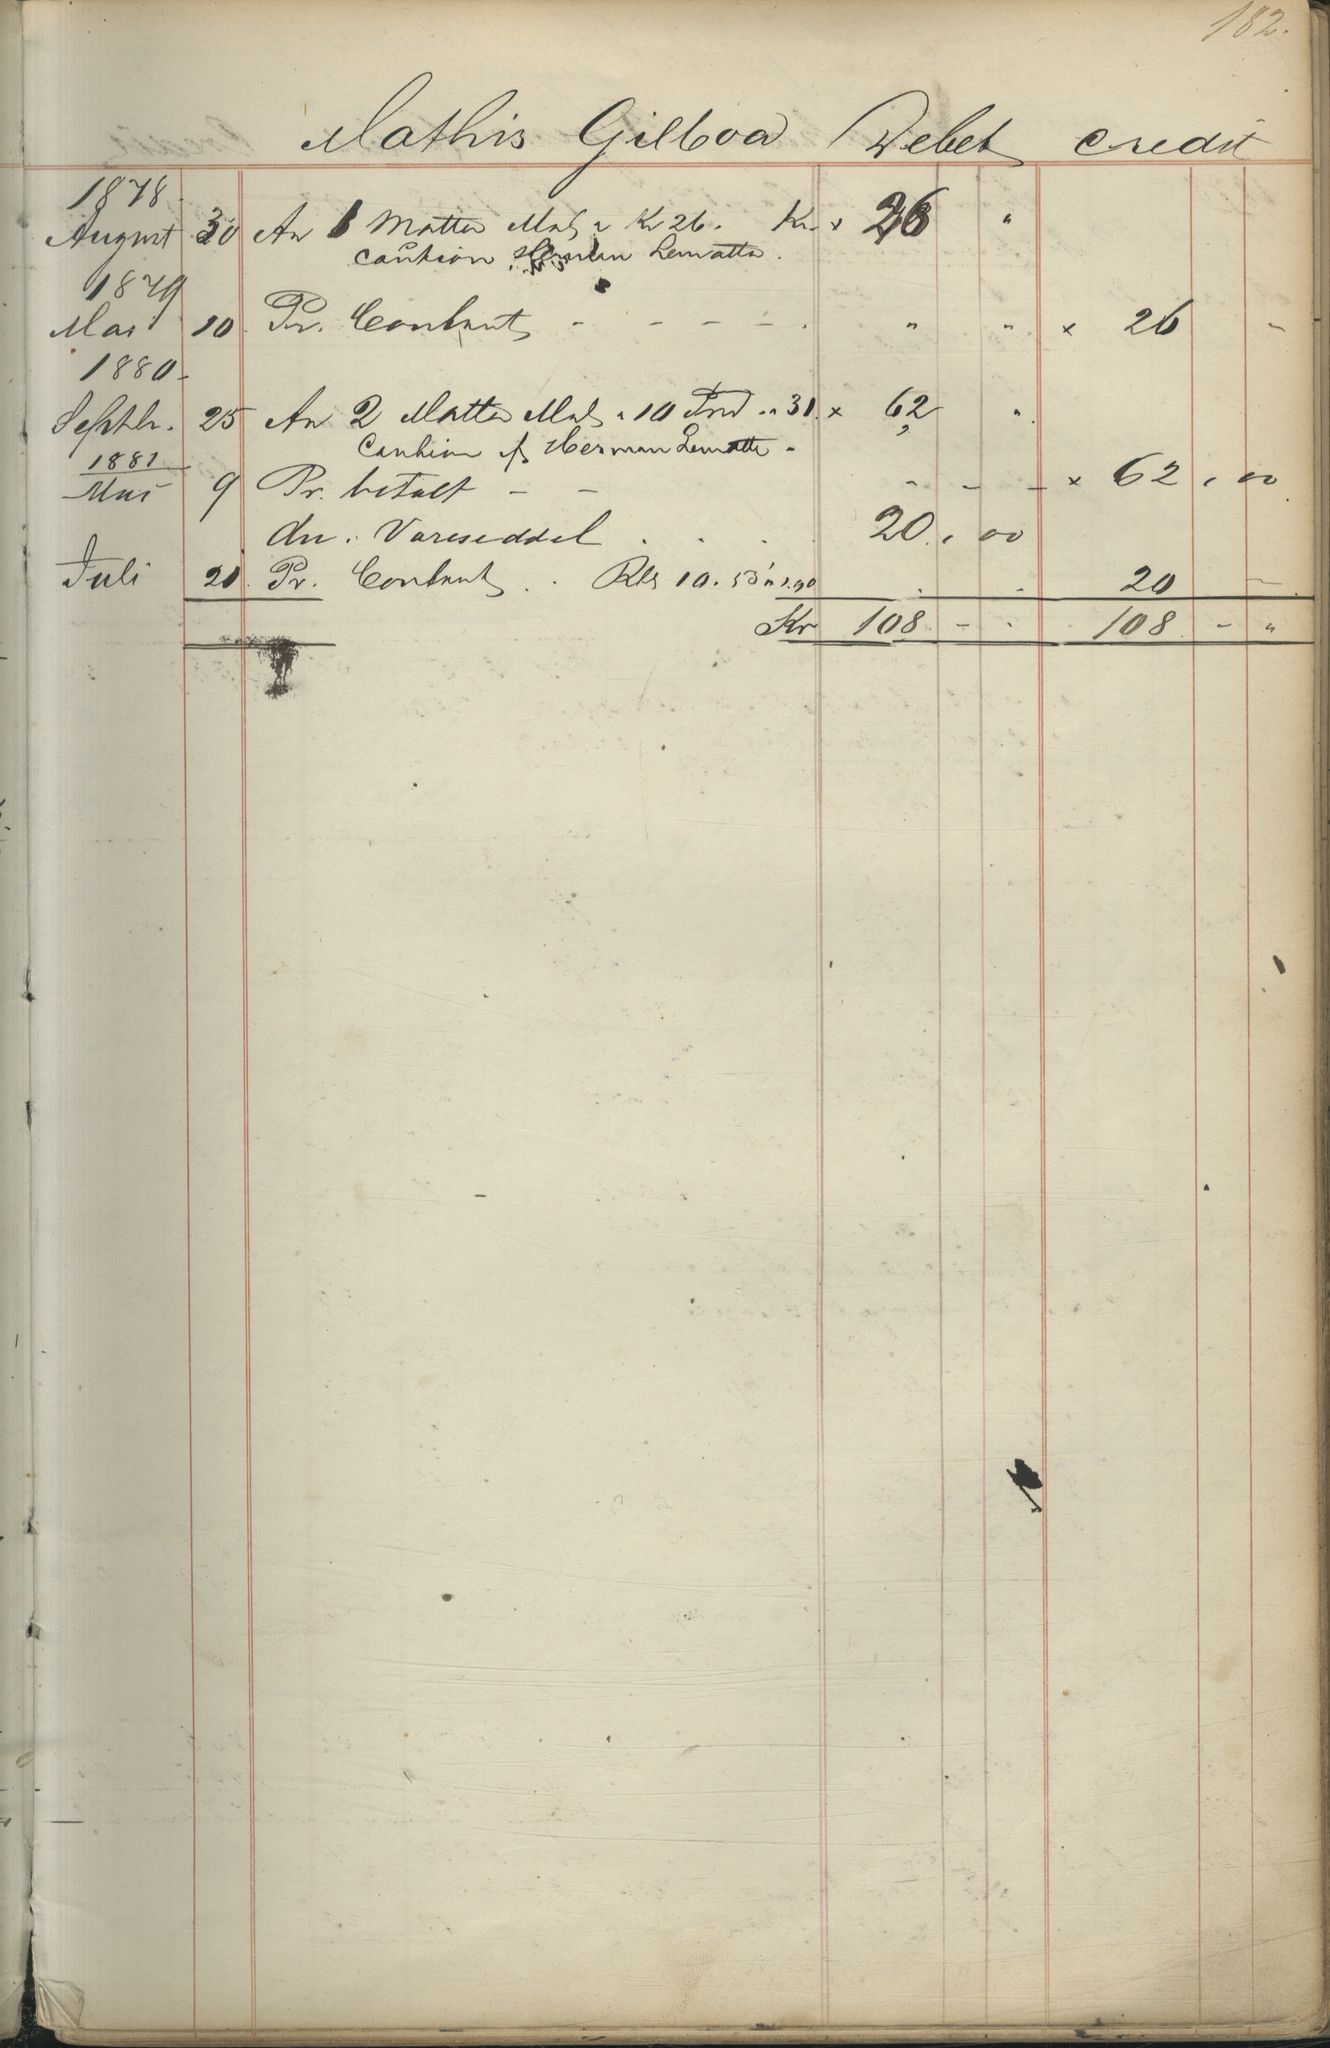 182.
Mathis Gilboa Debet Credit
1878.
August 30 An 1 Matte Mel a Kr 26. Kr. x 26 "
caution Herman Lematte.
1879
Mai 10 Pr. Contant - - - - - " " x 26 -
1880-
Septbr. 25 An 2 Matte Mel a 10 Pud a 31. x 62 "
Caution af Herman Lematte -
1881
Mai 9 Pr. betalt - - - - - x 62, 00
An. Vareseddel . . . . 20, 00
Juli 21 Pr. Contant . Rbs 10. 53 a 1.90 . . 20 -
Kr 108 - " 108 - "